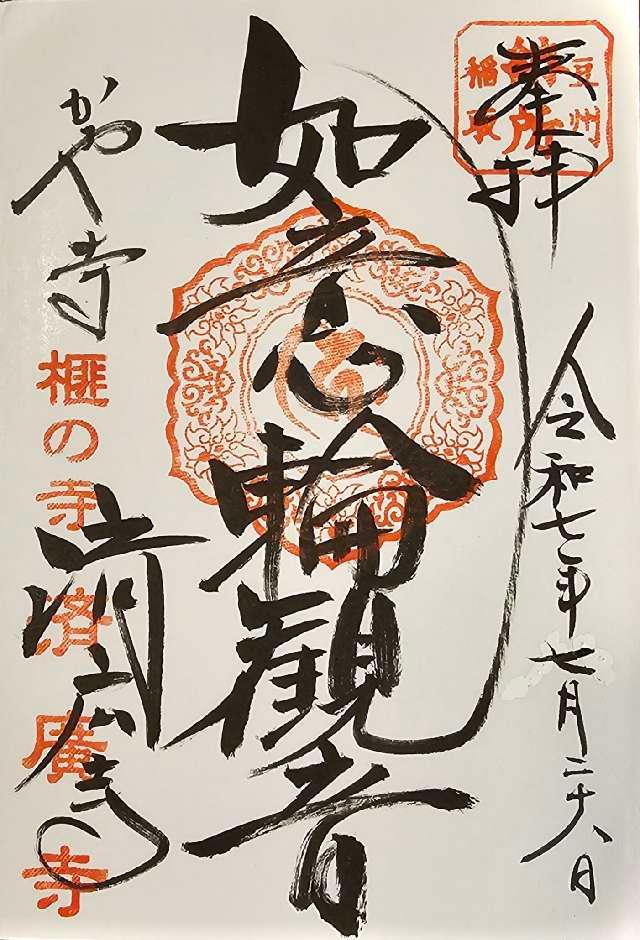 奉拝
豆州
稲取
令和七年七月二十八日
如意輪観音
かや寺
済広寺
榧の寺 済廣寺